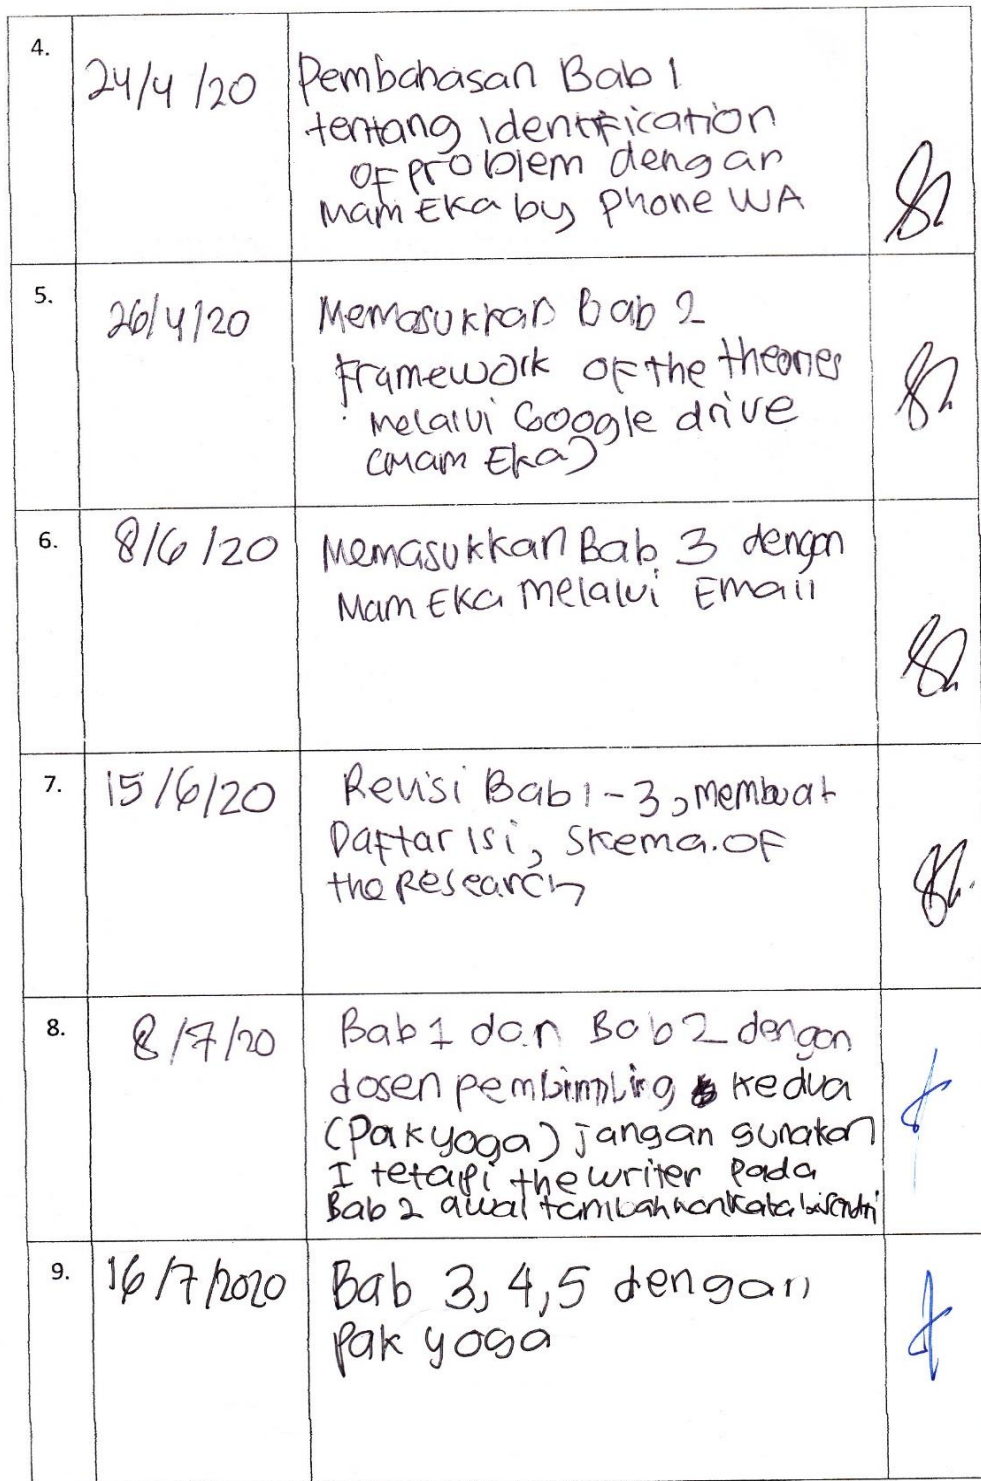 4.
24/4/20
Pembahasan Bab 1
tentang identification
of problem dengan
Mam Eka by Phone WA
5.
26/4/20
Memasukkan Bab 2
Framework of the theories
melalui Google drive
(Mam Eka)
6.
8/6/20
Memasukkan Bab 3 dengan
Mam Eka melalui Email
7.
15/6/20
Revisi Bab 1-3, membuat
Daftar isi, Skema.of
the Research
8.
8/7/20
Bab 1 dan Bab 2 dengan
dosen pembimbing kedua
(Pak yoga) jangan gunakan
I tetapi the writer pada
Bab 2 awal tambahkan kata
9.
16/7/2020
Bab 3, 4, 5 dengan
Pak yoga